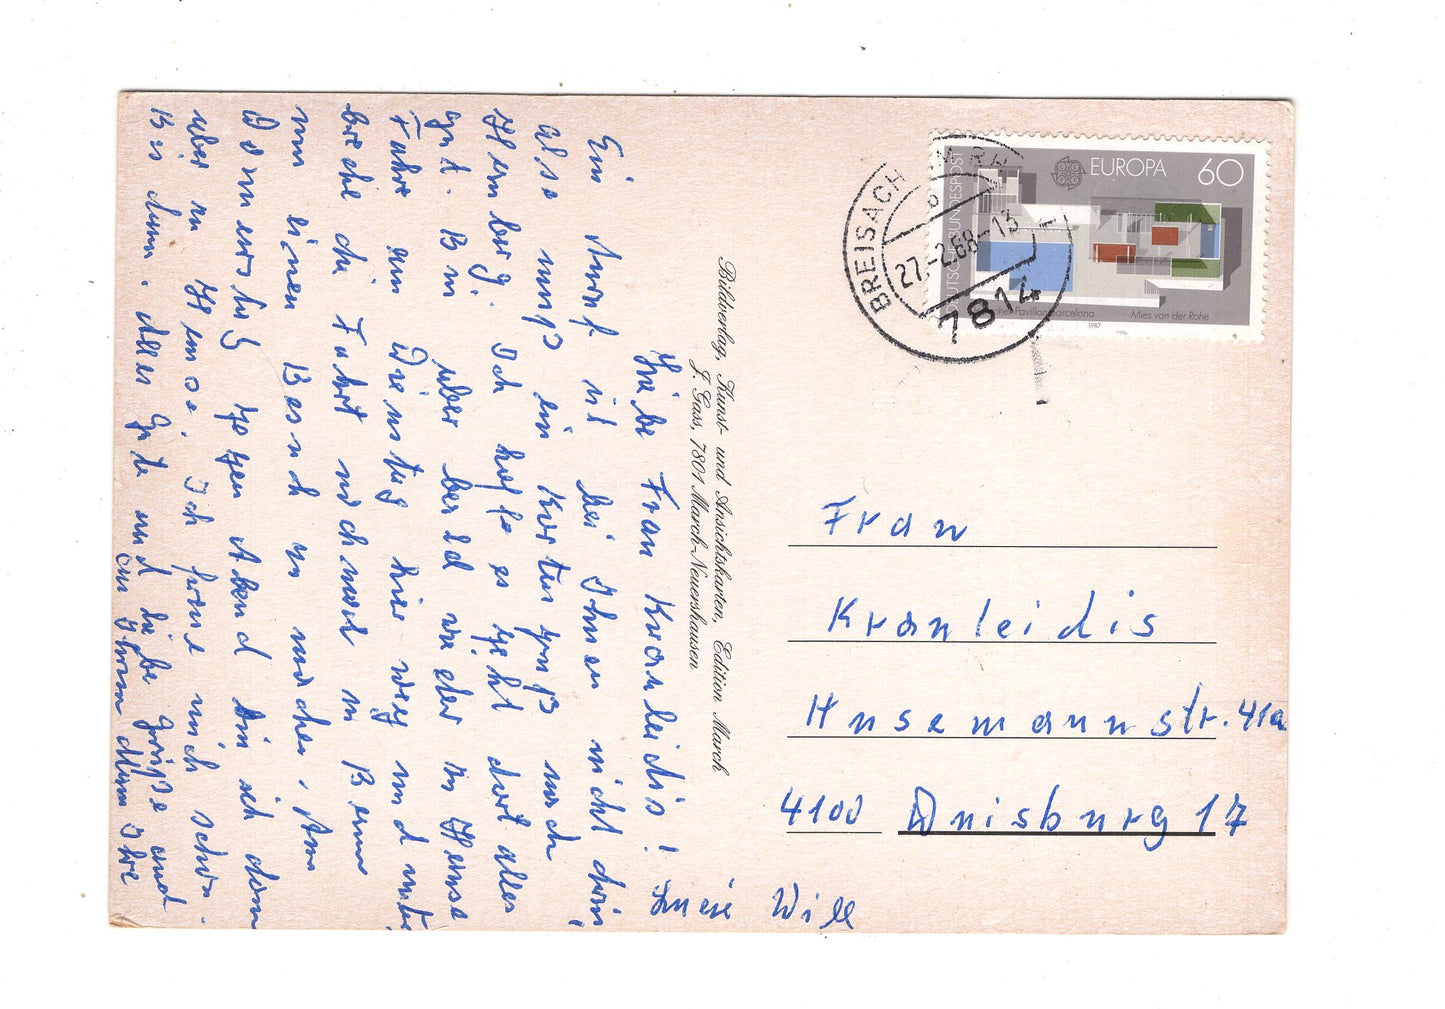 Liebe Frau Kranleidis!
Ein Anruf ist bei Ihnen nicht drin,
also muß ein Kartengruß nach
Homberg. Ich hoffe es geht dort alles
gut. Bin über bald wieder zu Hause
Fahre am Dienstag hier weg und unter
breche die Fahrt nochmal in Bonn
um einen Besuch zu machen. Am
Donnerstag gegen Abend bin ich dann
aber zu Hause. Ich freue mich schon.
Bis dann. Alles Gute und liebe Grüße auch
an Ihren Mann Ihre
Will
Bildverlag, Kunst- und Ansichtskarten, Edition March
J. Gass, 7801 March-Neuershausen
BREISACH AM RH
27.-2.88-13
7814
DEUTSCHE BUNDESPOST
EUROPA 60
Pavillon Barcelona
1987
Mies van der Rohe
Frau
Kranleidis
Husemannstr. 41a
4100 Duisburg 17